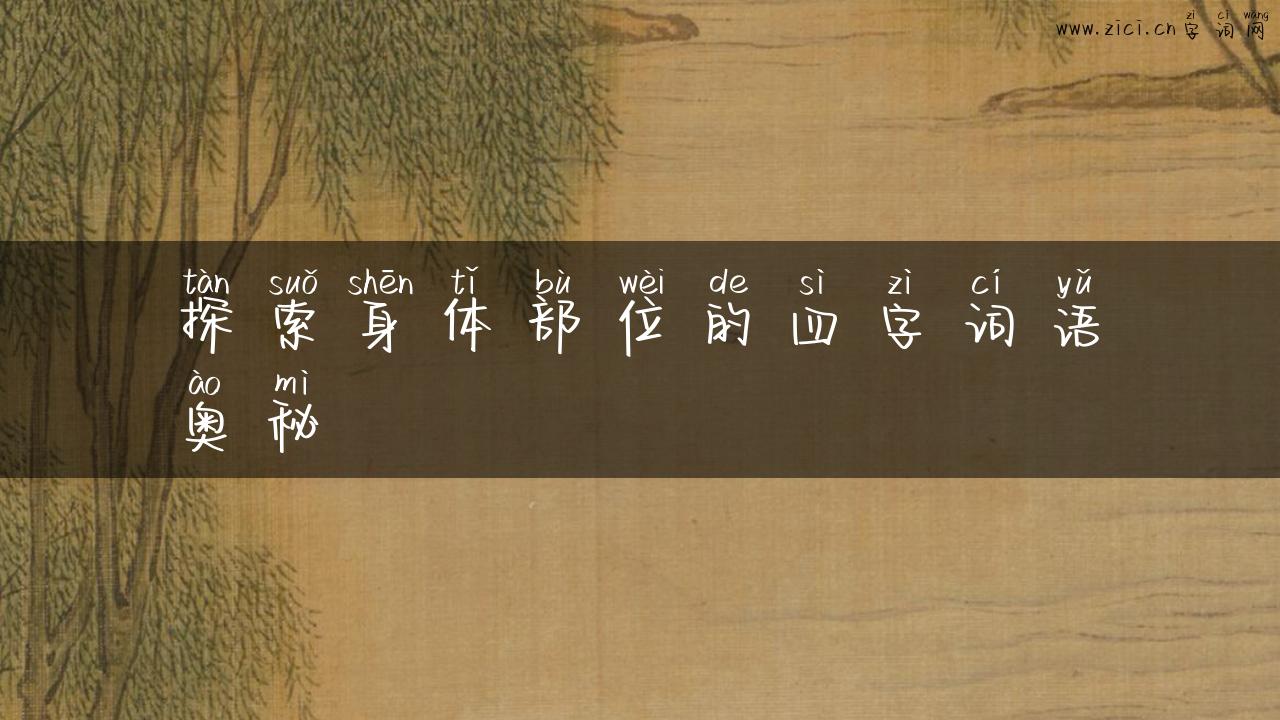 zì cí wǎng
www.zici.cn字词网
tàn suǒ shēn tǐ bù wèi de sì zì cí yǔ
探索身体部位的四字词语
ào mì
奥秘